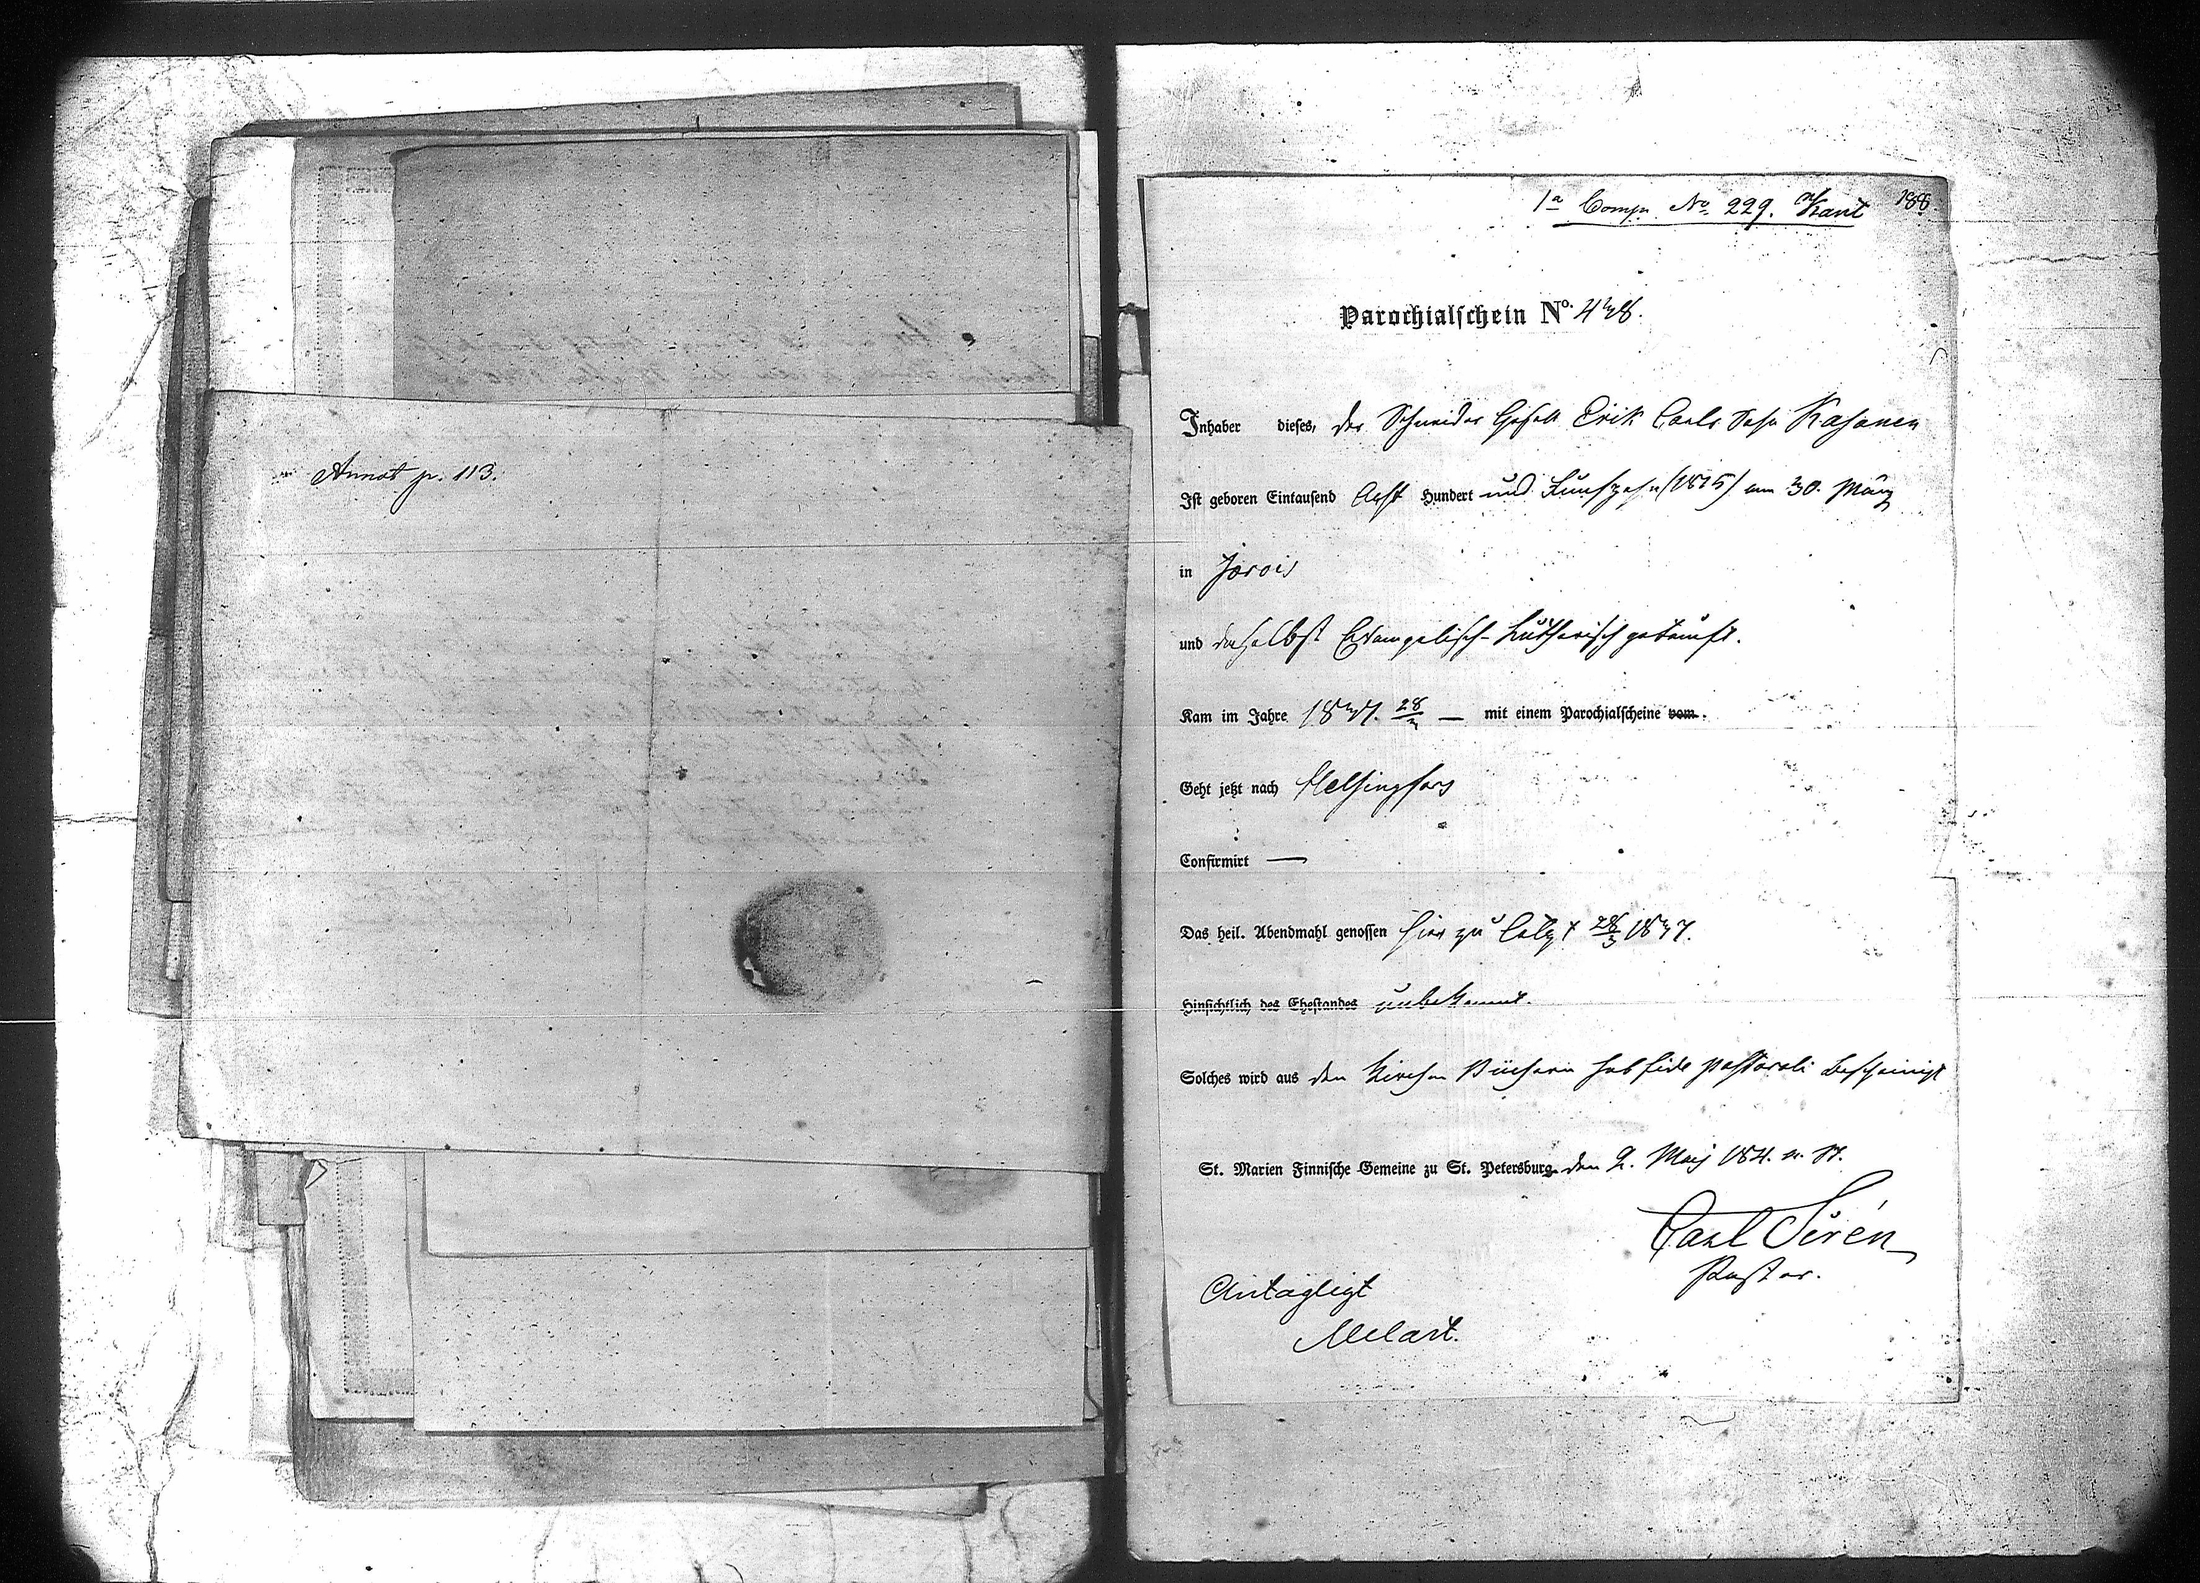 Annot p. 113.
1a Comp. No 229. Kant 188.
Parochialschein No. 438.
Inhaber dieses, der Schneider Gesell Erik Carls Sohn Kasanen
Ist geboren Eintausend Acht Hundert und Funfzehn (1815) am 30. März
in Jorois
und daselbst Evangelisch-Lutherisch getauft.
Kam im Jahre 1837. 28/3 — mit einem Parochialscheine vom.
Geht jetzt nach Helsingfors
Confirmirt —
Das heil. Abendmahl genossen hier zu 28/3 1837.
Hinsichtlich des Ehestandes unbekannt.
Solches wird aus den Kirchen Büchern sub fide pastorali bescheinigt
St. Marien Finnische Gemeine zu St. Petersburg den 2. Maij 184. St.
Carl Sirén
Pastor.
Antagligt
Melart.